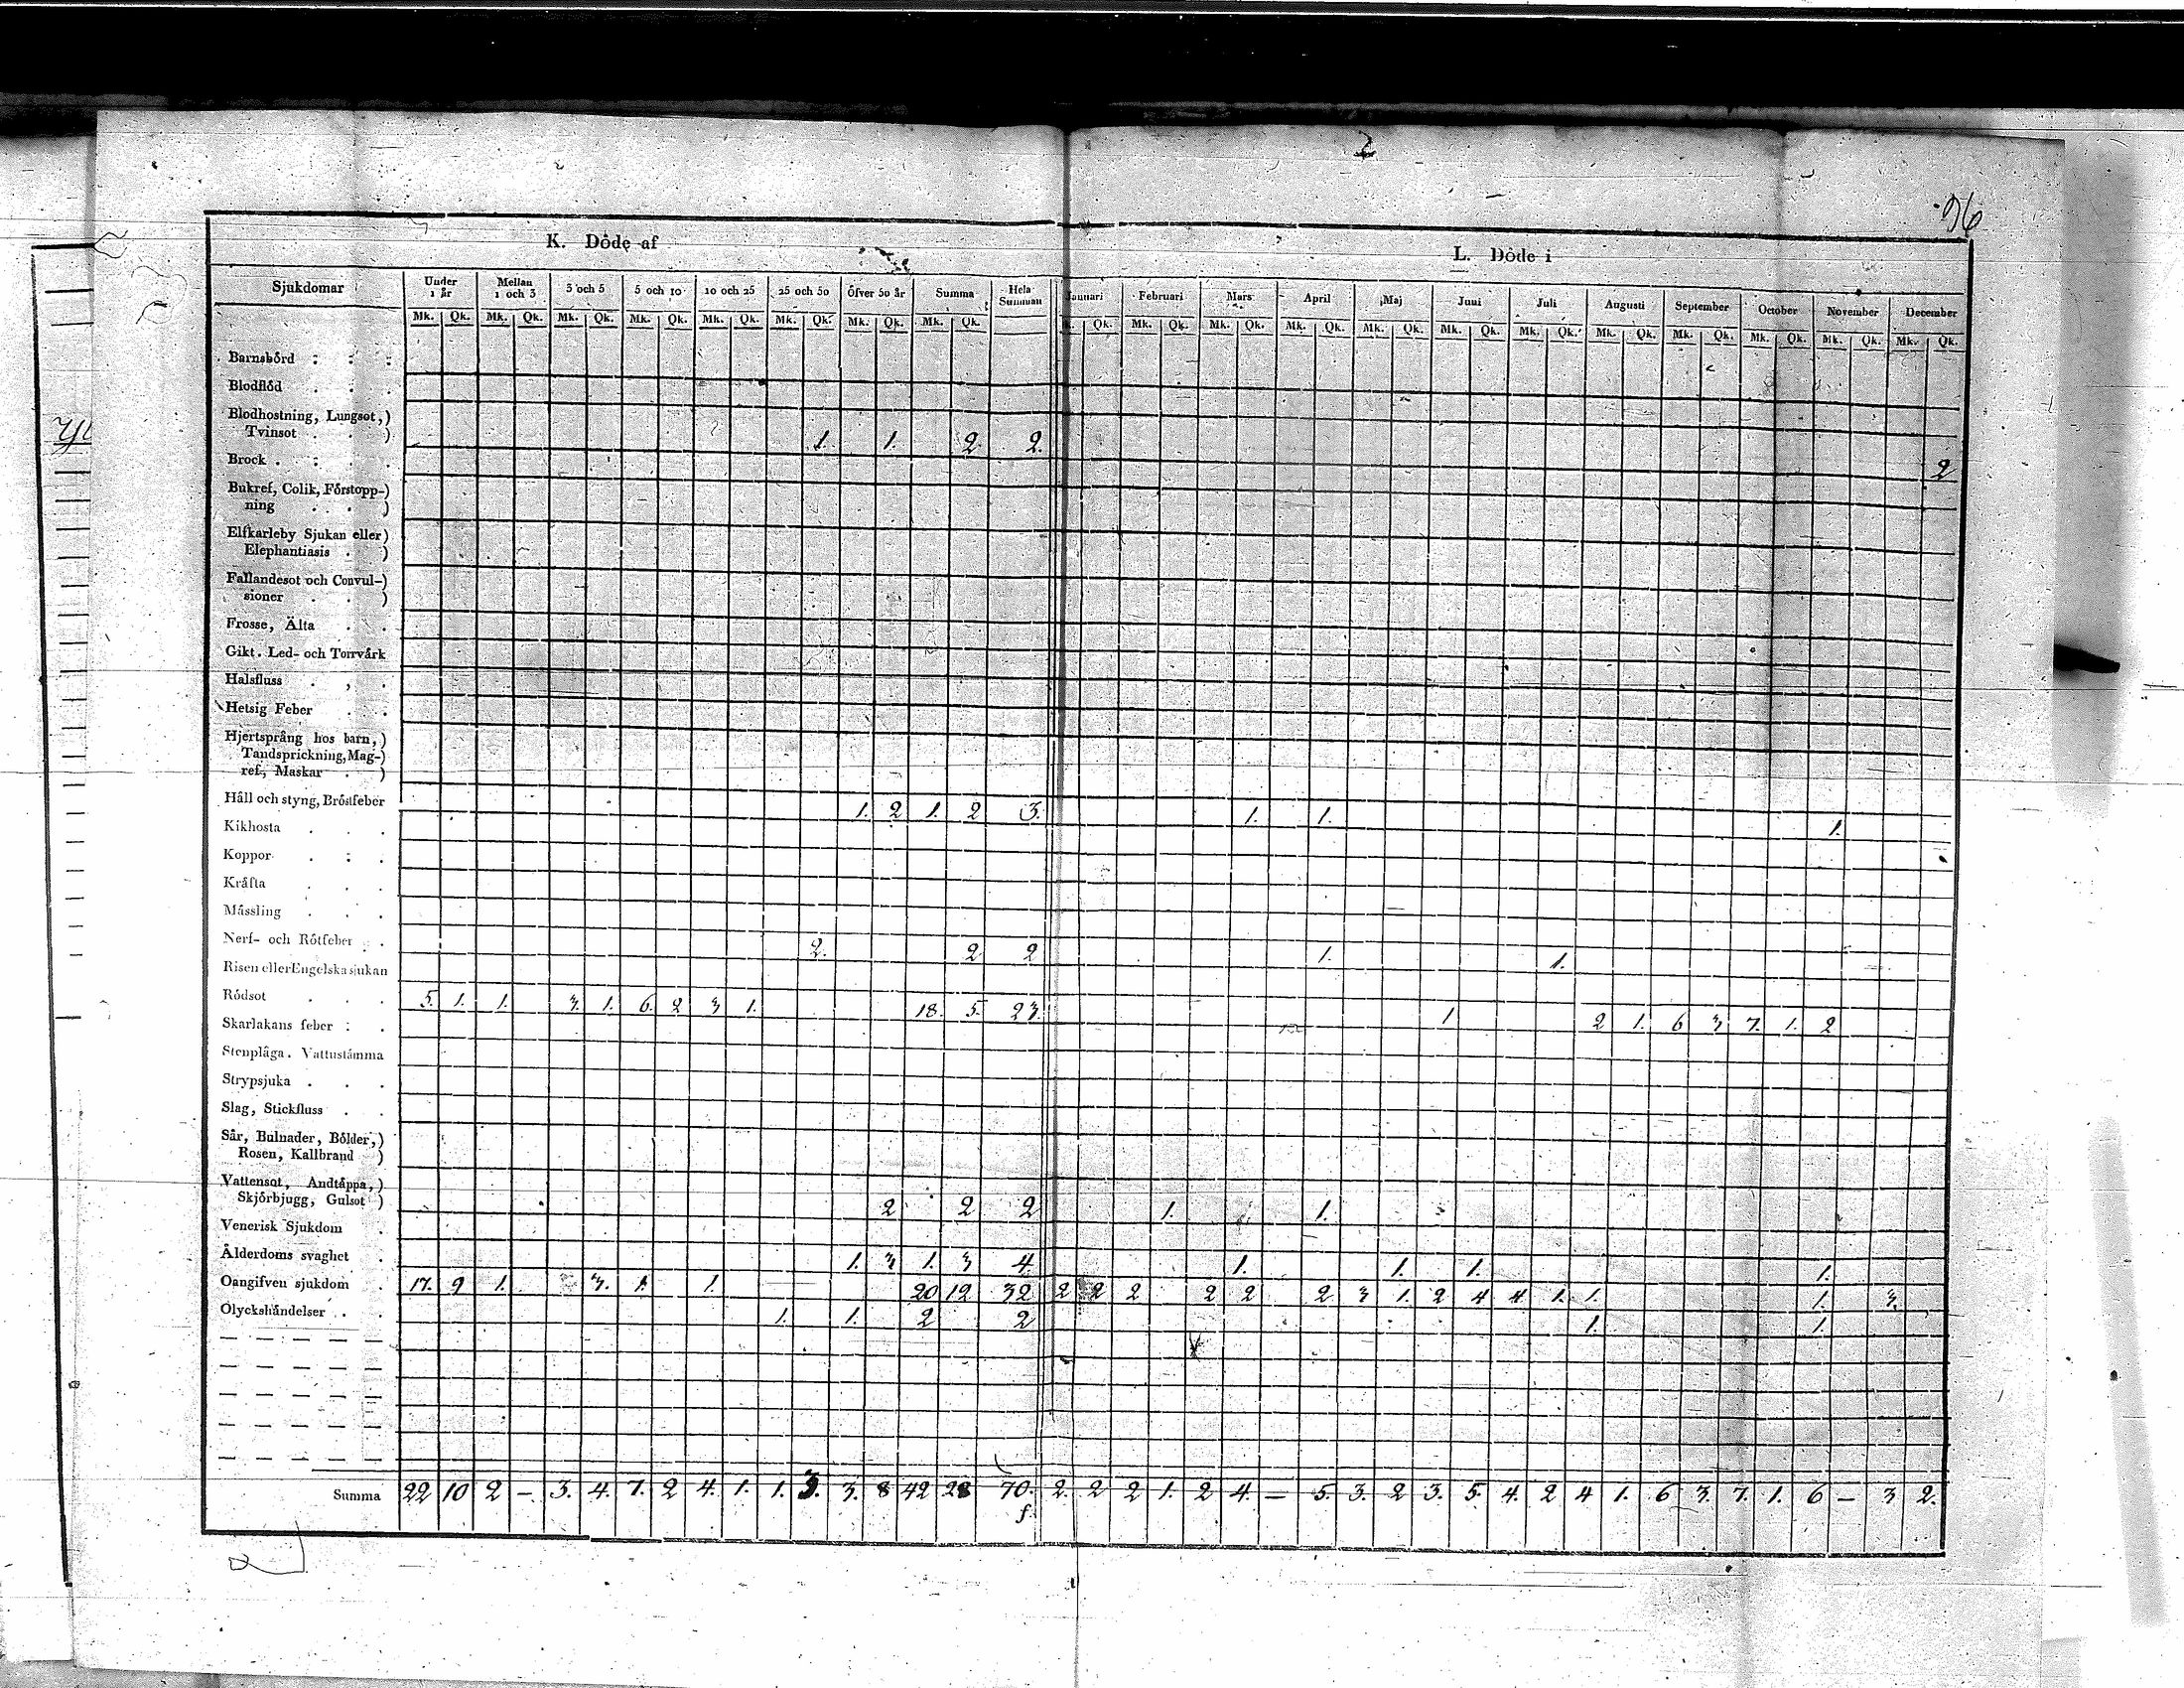 2
96
K. Döde af
L. Döde i
Sjukdomar Under 1 år Mellan 1 och 3 3 och 5 5 och 10 10 och 25 25 och 50 Öfver 50 år Summa Hela Summan Januari Februari Mars April Maj Juni Juli Augusti September October November December
Mk. Qk. Mk. Qk. Mk. Qk. Mk. Qk. Mk. Qk. Mk. Qk. Mk. Qk. Mk. Qk. k. Qk. Mk. Qk. Mk. Qk. Mk. Qk. Mk. Qk. Mk. Qk. Mk. Qk. Mk. Qk. Mk. Qk. Mk. Qk. Mk. Qk. Mk. Qk.
Barnsbörd
Blodflöd
Blodhostning, Lungsot,)
Tvinsot ) 1. 1. 2. 2. 2
Brock
Bukref, Colik, Förstopp-)
ning )
Elfkarleby Sjukan eller)
Elephantiasis )
Fallandesot och Convul-)
sioner )
Frosse, Älta
Gikt. Led- och Torrvärk
Halsfluss
Hetsig Feber
Hjertsprång hos barn,)
Tandsprickning, Mag-)
ref., Maskar )
Håll och styng, Bröstfeber 1. 2 1. 2 3. 1. 1. 1.
Kikhosta
Koppor
Kräfta
Mässling
Nerf- och Rötfeber 2. 2 2 1. 1.
Risen eller Engelska sjukan
Rödsot 5. 1. 1. 3. 1. 6. 2 3 1. 18. 5. 23. 1 2 1. 6 3 7. 1. 2
Skarlakans feber
Stenplåga. Vattustämma
Strypsjuka
Slag, Stickfluss
Sår, Bulnader, Bölder,)
Rosen, Kallbrand )
Vattensot, Andtäppa,)
Skjörbjugg, Gulsot ) 2 2 2 1. 1.
Venerisk Sjukdom
Ålderdoms svaghet 1. 3 1. 3 4. 1. 1. 1. 1.
Oangifven sjukdom 17. 9 1. 3. 1. 1. 20 12 32 2 2 2 2 2 2 3 1. 2 4 4 1. 1. 1. 3.
Olyckshändelser 1. 1. 2 2 1. 1.
Summa 22 10 2 — 3. 4. 7. 2 4. 1. 1. 3. 3. 8 42 28 70. 2. 2 2 1. 2 4. — 5. 3. 2 3. 5. 4. 2 4 1. 6 3. 7. 1. 6 — 3 2.